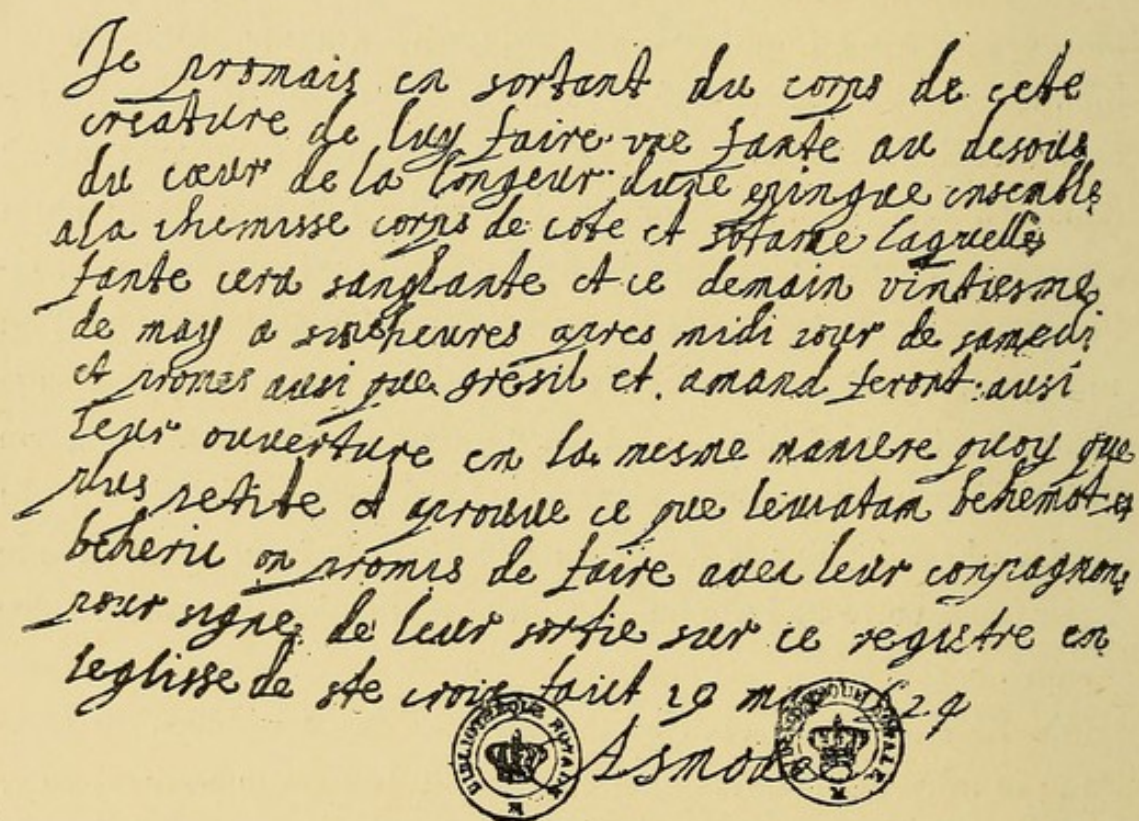 Je promais en sortant du corps de cete
creature de luy faire une fante au desous
du cœur de la longeur dune epingue ensemble
a la chemisse corps de cote et sotane laquelle
fante cera sanglante et ce demain vintiesme
de may a heures apres midi iour de samedi
et promes ausi que gresil et amand feront ausi
leur ouverture en la mesme maniere quoy que
plus petite et aprouve ce que leviatam behemot et
beherie on promis de faire avec leur conpagnon
pour signe de leur sortie sur ce registre en
leglisse de ste croix faict 19 may
Asmodee
BIBLIOTHEQUE ROYALE